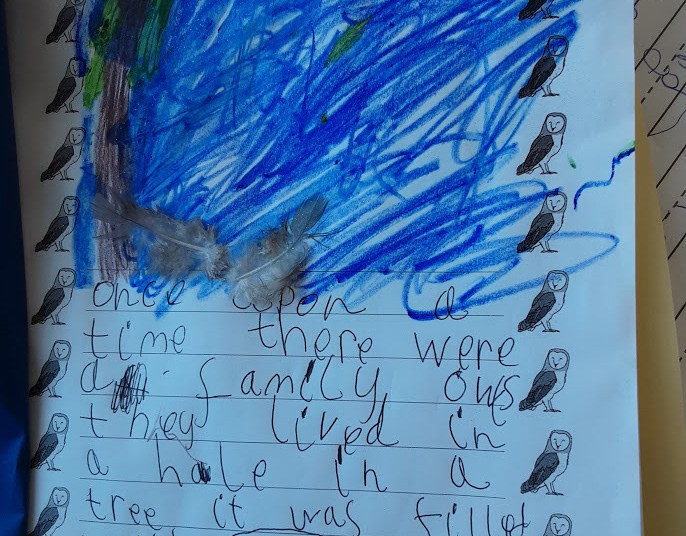 once upon a
time there were
a family owls
they lived in
a hole in a
tree it was filled